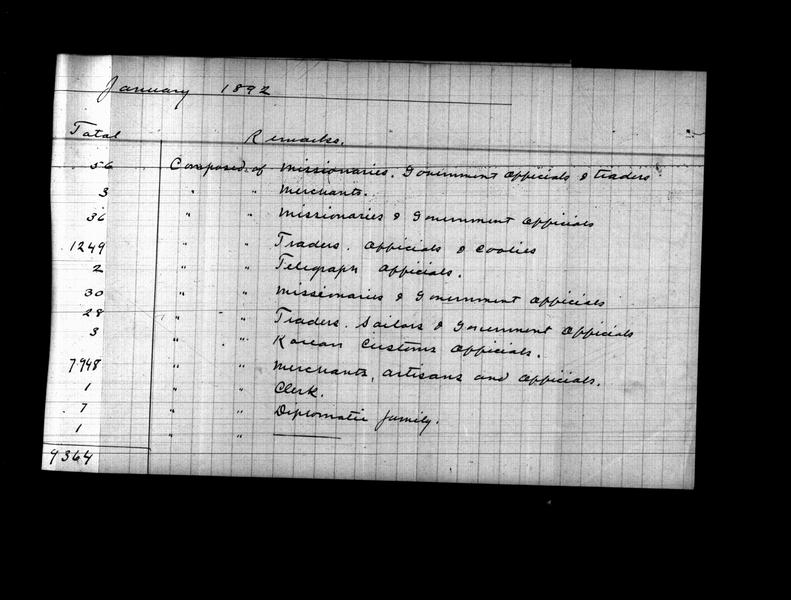 January 1892
Total Remarks.
56 Composed of Missionaries. Government Officials & traders
3 " " Merchants.
36 " " Missionaries & Government Officials
1249 " " Traders. Officials & Coolies
2 " " Telegraph Officials.
30 " " Missionaries & Government Officials
28 " " Traders. Sailors & Government Officials
3 " " Korean Customs Officials.
7948 " " Merchants, artisans and officials.
1 " " Clerk.
7 " " Diplomatic family.
1 " "
9364